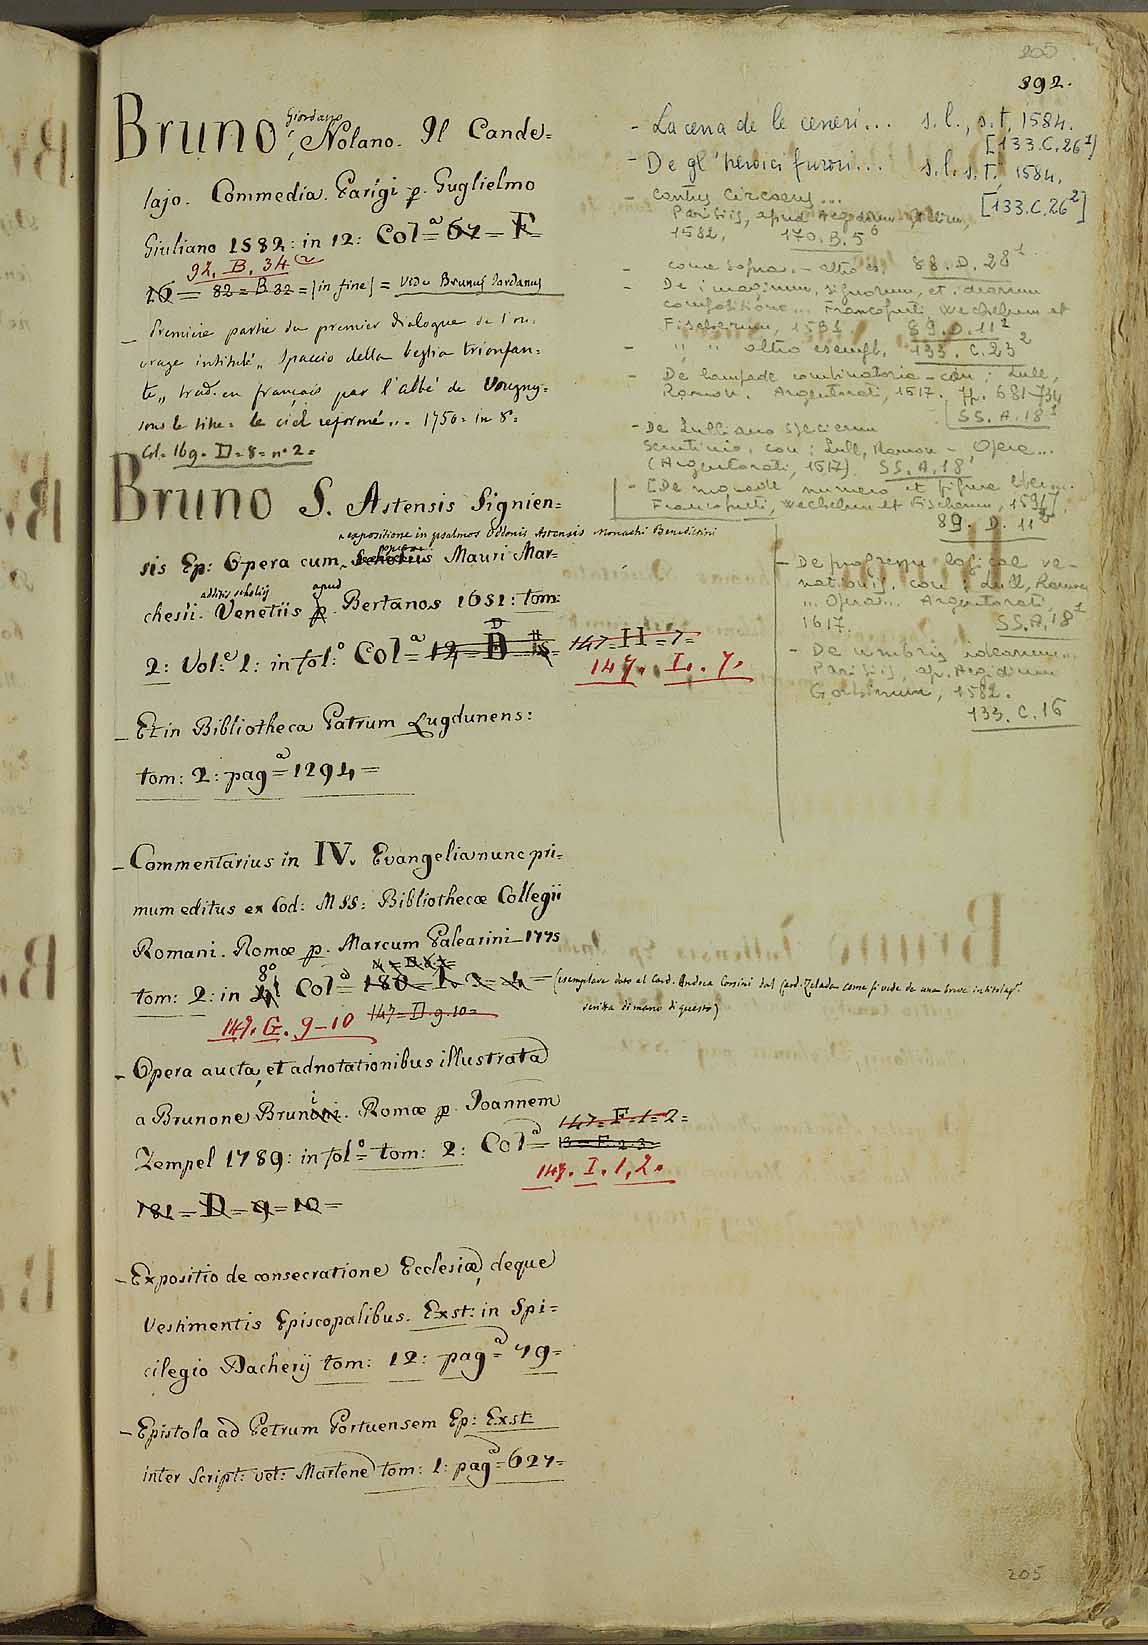 205
392.
Bruno, Giordano Nolano. Il Cande=
lajo. Commedia. Parigi p. Guglielmo
Giuliano 1582: in 12: Col.a 67 = F
92. B. 34
16 = 82 = B 32 = (in fine) = vide Brunus Jordanus
_ Premiere partie du premier dialogue de l'ou.
vrage intitulé „ Spaccio della bestia trionfan=
te„ trad. en français par l'abbé de Vougny=
sous le titre = le ciel reformé„. 1750= in 8=
Col. 169. D=8= n.o 2=
Bruno S. Astensis Signien=
expositione in psalmos Odonis Astensis Monachi Benedictini
sis Ep: Opera cum Mauri Mar=
additis scholiis apud
chesii. Venetiis p. Bertanos 1651: tom:
2: Vol.e 1: in fol.o Col.a 12, B 147. H = 7=
147. I. 7.
_ Et in Bibliotheca Patrum Lugdunens:
tom: 2: pag.a 1294=
_ Commentarius in IV. Evangelia nunc pri=
mum editus ex Cod: MSS: Bibliothecæ Collegii
Romani. Romæ p. Marcum Palearini_ 1775
8o
tom: 2: in 4.o Col.a 180 = 1. 3 = 4 = (esemplare dato al Card. Andrea Corsini dal Card. Zelada come si vede da una breve
scritta di mano di questo)
149. G. 9-10 147= D. 9. 10=
_ Opera aucta, et adnotationibus illustrata
a Brunone Brunoni. Romæ p. Joannem
147= F. 1= 2=
Zempel 1789: in fol.o = tom: 2: Col.a 13 = F. 2. 3=
149. I. 1, 2.
181 = D = 9 = 10 =
_ Expositio de consecratione Ecclesiæ, deque
Vestimentis Episcopalibus. Exst: in Spi=
cilegio Dacherij tom: 12: pag.a 79=
_ Epistola ad Petrum Portuensem Ep: Exst
inter Script: vet: Martene tom: 1: pag.a 627=
- La cena de le ceneri... s.l., s.t. 1584.
[133.C.26 1]
- De gl'heroici furori... s.l. s.t., 1584.
[133.C.26 2]
- Cantus Circaeus...
Parisiis, apud Aegidium
1582, 170. B. 5 6
- come sopra. - altro es. 88. D. 28 1
- De imaginum, signorum, et idearum
compositione... Francofurti, Wechelium et
Fischerum, 1591. 89. D. 11 2
- „ „ altro esempl. 133. C. 23 2
- De lampade combinatoria - con: Lull,
Ramon. Argentorati, 1617. pp. 681-734
SS. A. 18 1
- De Lulliano specierum
scrutinio, con: Lull, Ramon - Opera...
(Argentorati, 1617) SS. A. 18 1
- [De monade numero et figura liber...
Francofurti, Wechelium et Fischerum, 1591]
89. D. 11
- De progressu logicae ve-
nationis, con: Lull, Ramon
... Opera... Argentorati,
1617. SS. A. 18 1
- De umbris idearum...
Parisiis, ap. Aegidium
Gorbinum, 1582.
133. C. 16
205